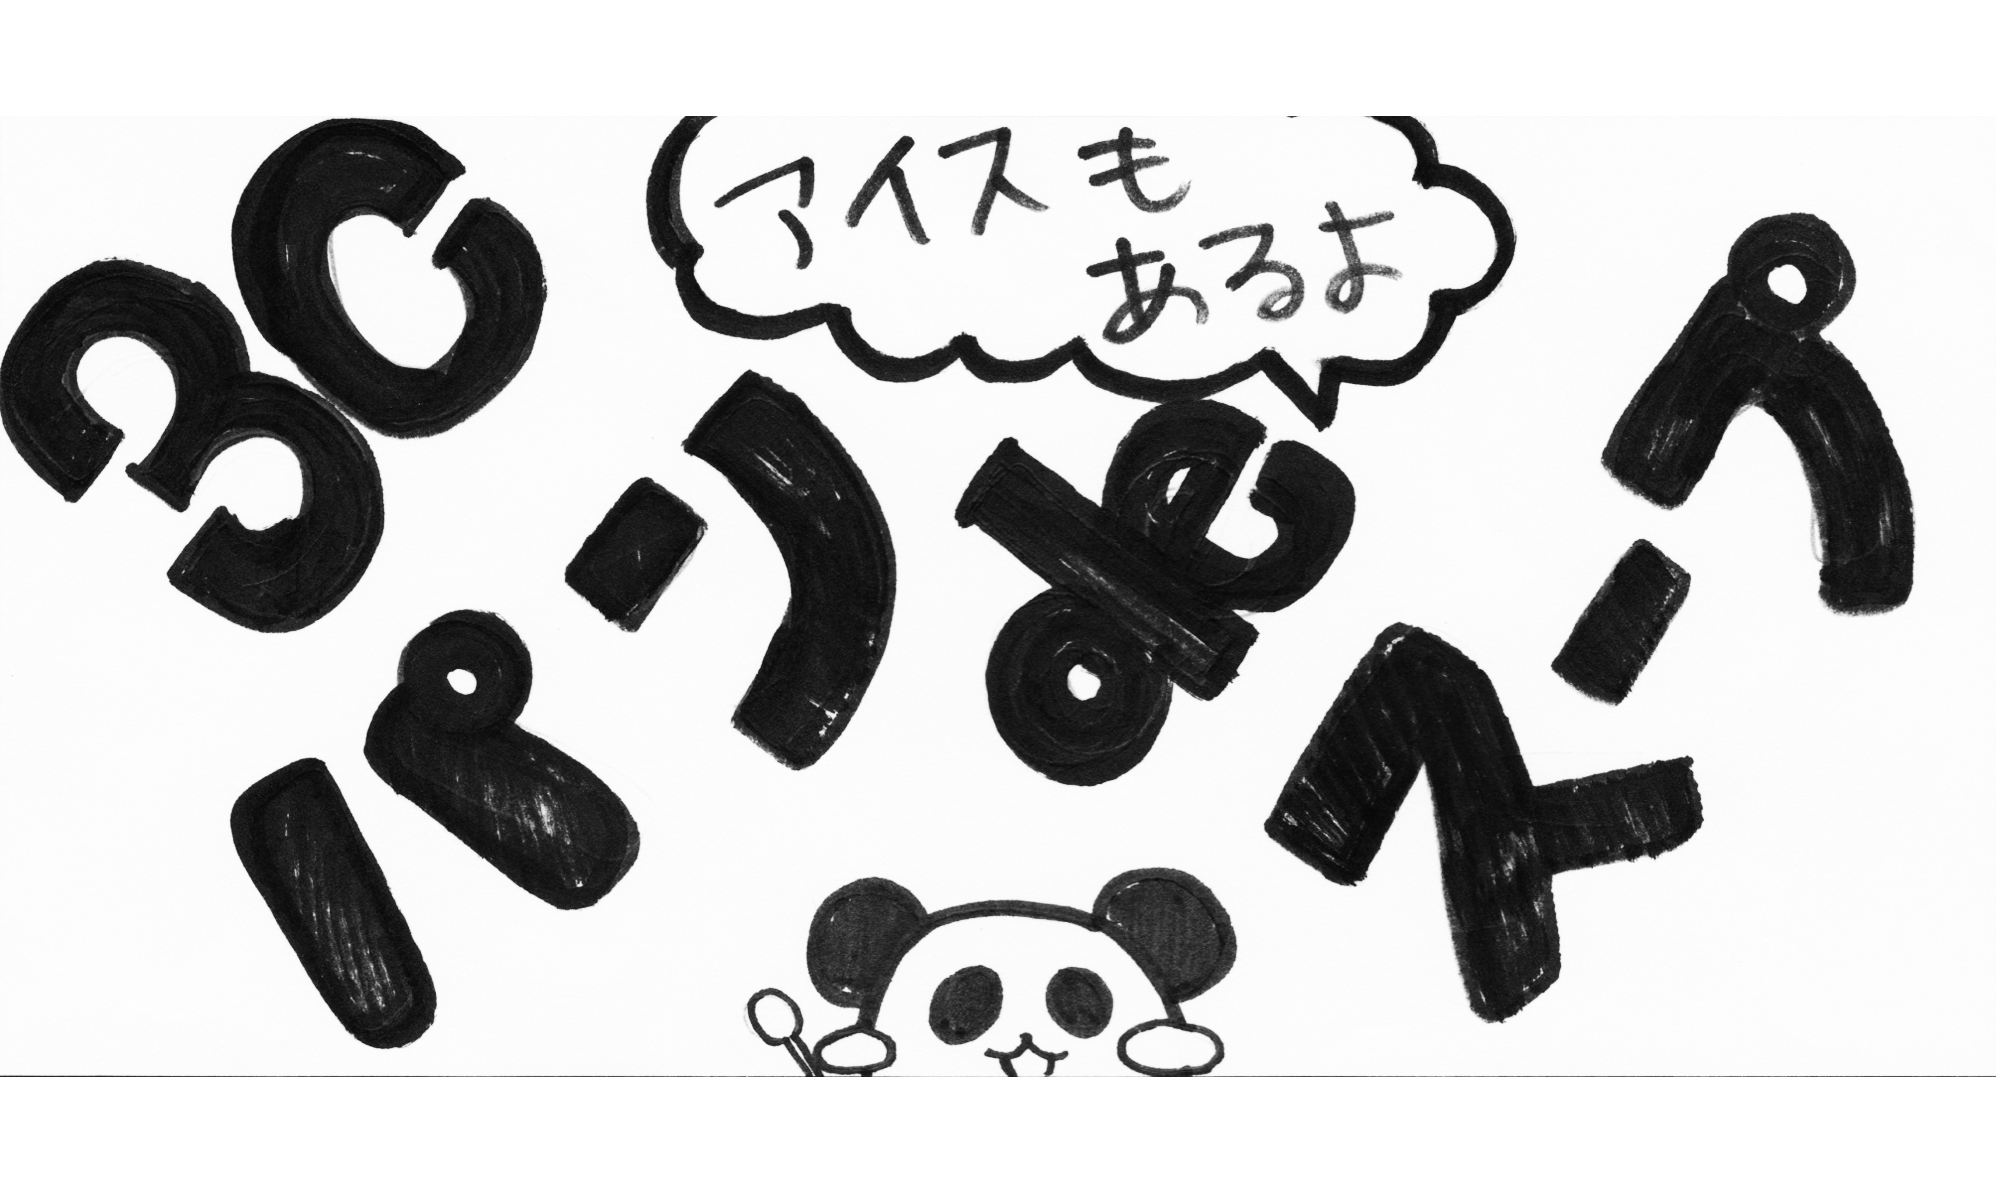 3C
アイスも
あるよ
パンdeスープ